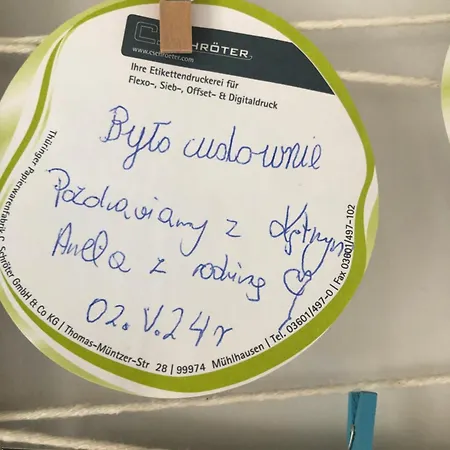 SCHRÖTER
www.cschroeter.com
Ihre Etikettendruckerei für
Flexo-, Sieb-, Offset- & Digitaldruck
Było cudownie
Pozdrawiamy z
Aneta z rodziną
02.V.24r
Thüringer Papierwarenfabrik C. Schröter GmbH & Co KG | Thomas-Müntzer-Str 28 | 99974 Mühlhausen | Tel. 03601/497-0 | Fax 03601/497-102